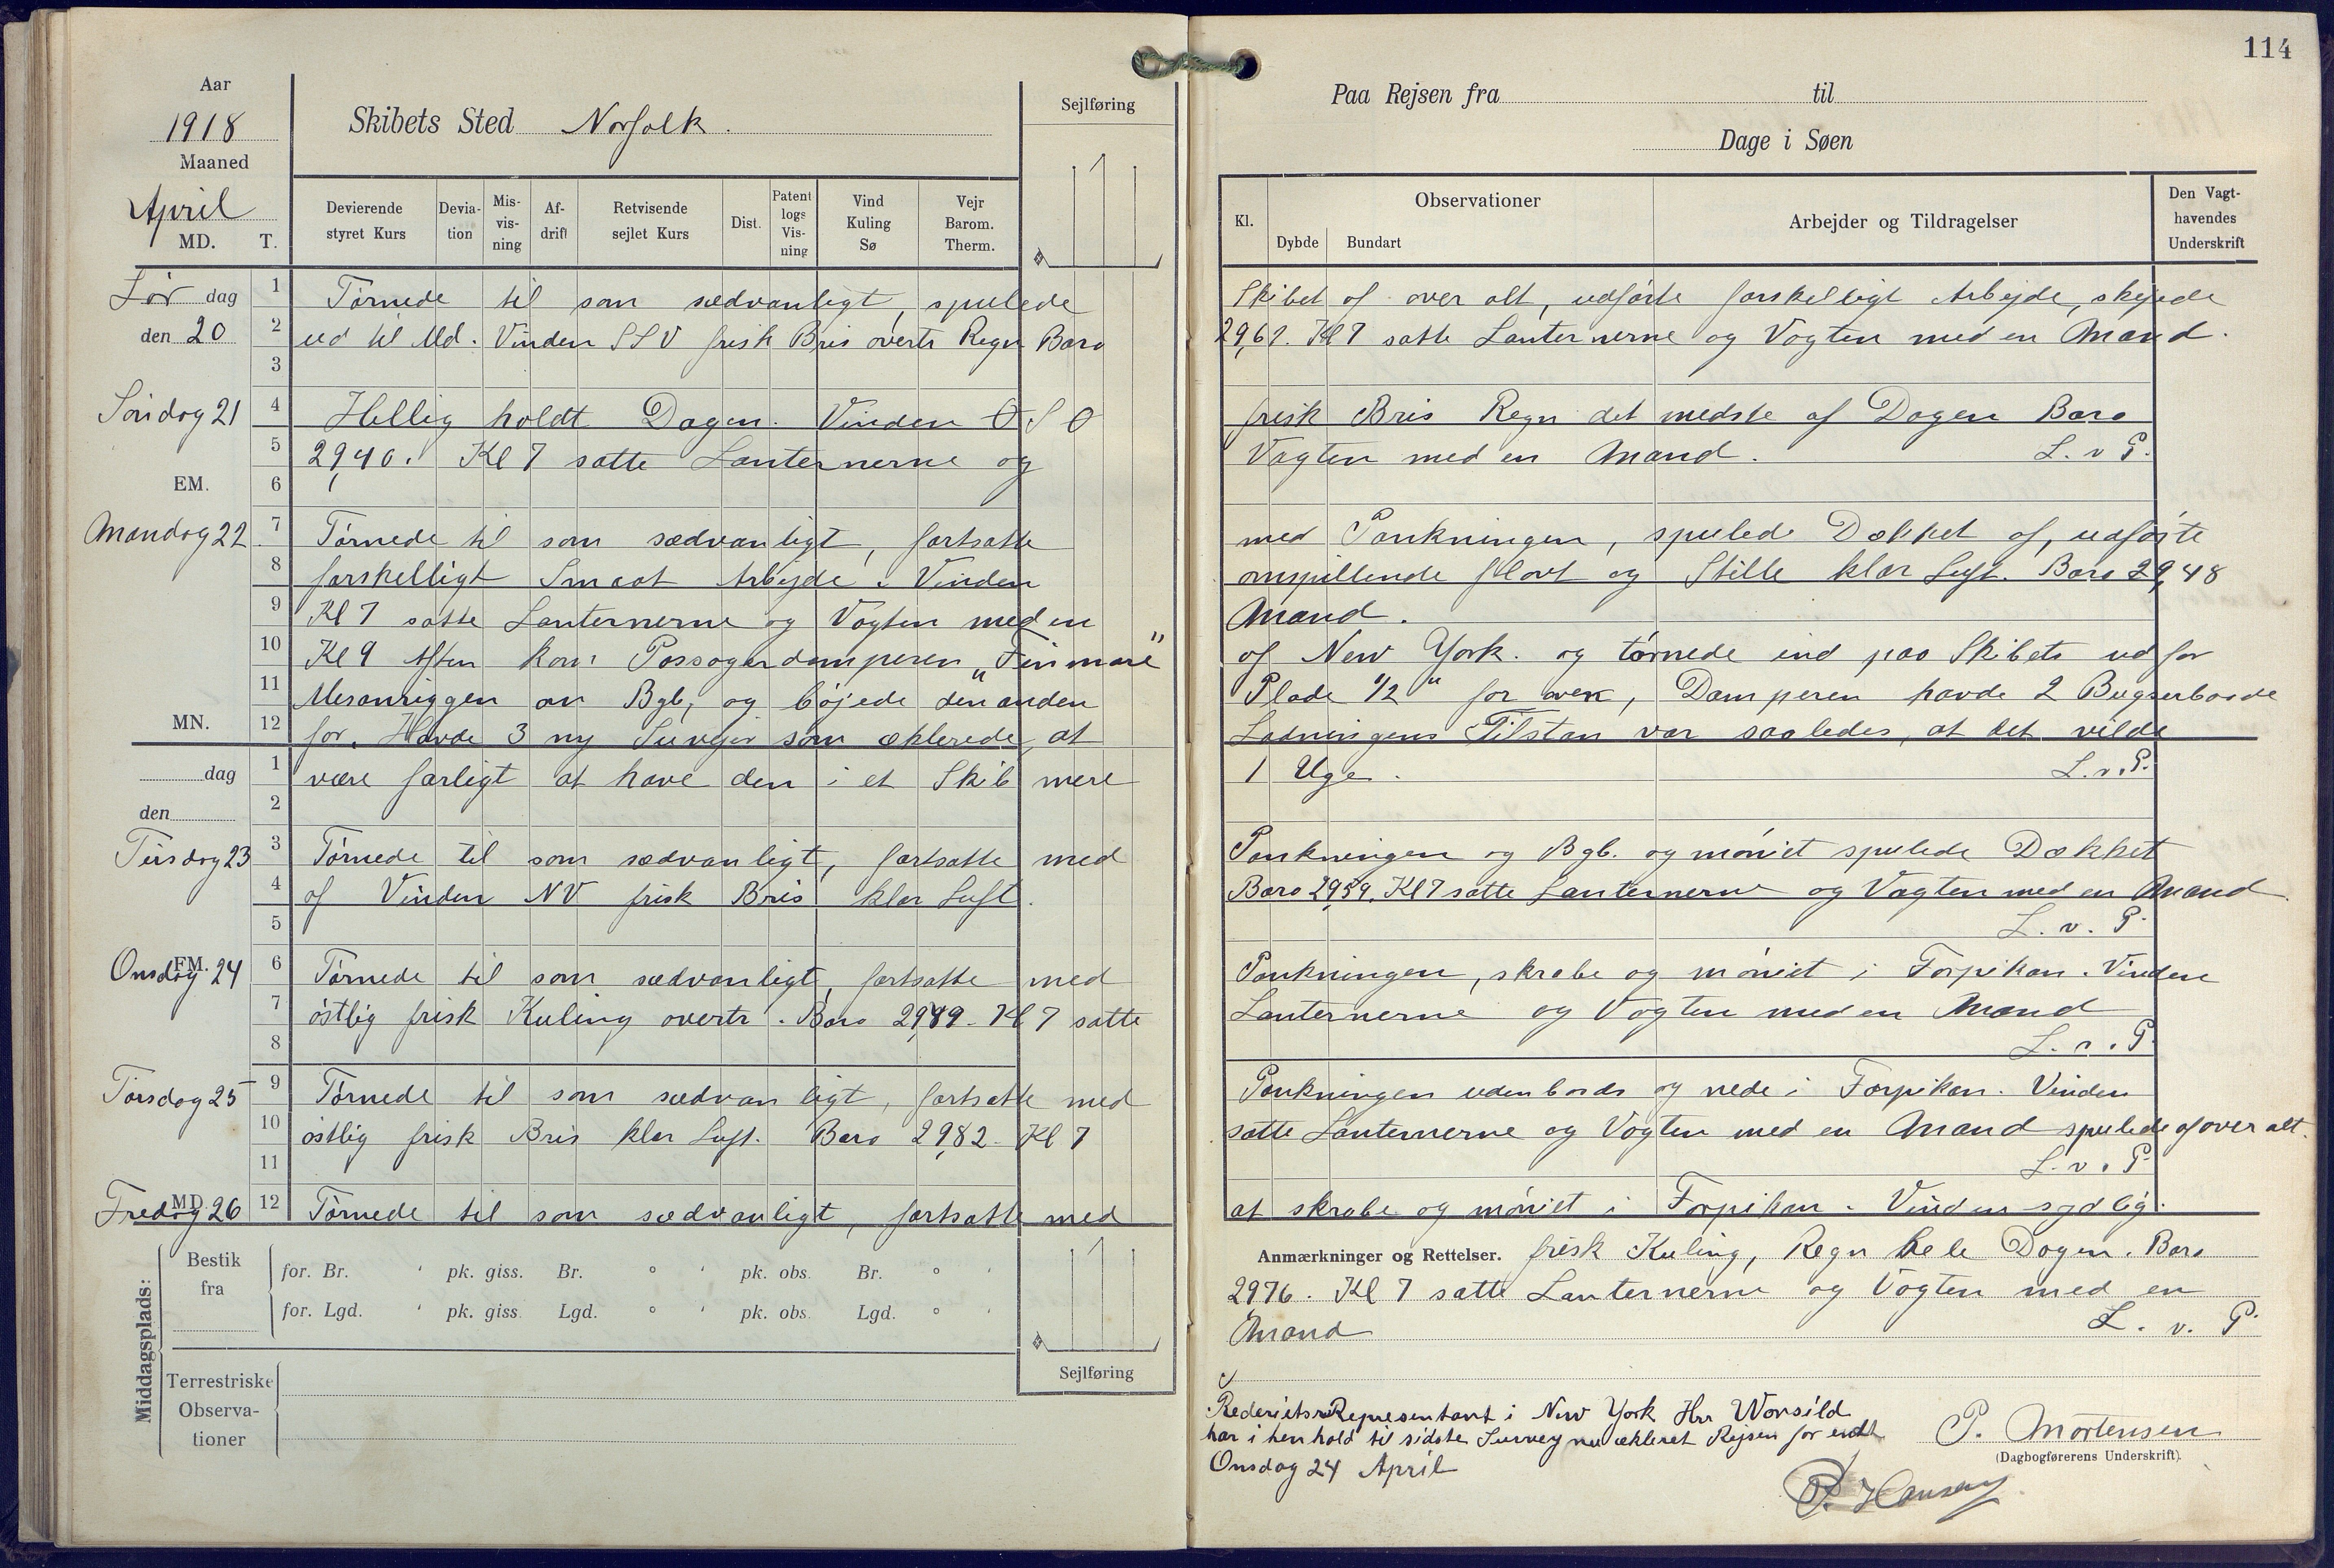 114
Aar
1918
Maaned
April
MD. T.
Skibets Sted Norfolk.
Sejlføring
Devierende styret Kurs
Deviation
Misvisning
Afdrift
Retvisende sejlet Kurs
Dist.
Patent logs Visning
Vind Kuling Sø
Vejr Barom. Therm.
Paa Rejsen fra til
Dage i Søen
Kl.
Observationer
Dybde Bundart
Arbejder og Tildragelser
Den Vagthavendes Underskrift
Lør dag den 20
1 Tørnede til som sædvanligt, spulede
Skibet af over alt, udførte forskelligt Arbejde, skejede
2 ud til Md. Vinden SSV frisk Bris overtr Regn Baro
29,61. Kl 7 satte Lanternerne og Vagten med en Mand.
3
Søndag 21
4 Hellig holdt Dagen. Vinden O S O
frisk Bris Regn det medste af Dagen Baro
5 29,40. Kl 7 satte Lanternerne og
Vagten med en Mand. L. v P.
EM.
6
Mandag 22
7 Tørnede til som sædvanligt, fortsatte
med Pankningen, spulede Dækket af, udførte
8 forskelligt Smaat Arbejde. Vinden
omspillende flovt og Stille klar Luft. Baro 29,48
9 Kl 7 satte Lanternerne og Vagten med en
Mand.
10 Kl 9 Aften kom Passagerdamperen „Finmare"
af New York. og tørnede ind paa Skibets ud for
11 Mesanriggen om Bgb, og bøjede den anden
Plade 1/2" for oven, Damperen havde 2 Bugserbaade
MN.
12 for. Havde 3 ny Survejer som æklerede, at
Ladningens Tilstan var saaledes, at det vilde
dag
1 være farligt at have den i et Skib mere
1 Uge. L. v. P.
den
2
Tirsdag 23
3 Tørnede til som sædvanligt, fortsatte med
Pankningen og Bgb. og møniet spulede Dækket
4 af Vinden NV frisk Bris klar Luft.
Baro 29,59. Kl 7 satte Lanternerne og Vagten med en Mand.
5
L. v. P.
Onsdag 24
FM.
6 Tørnede til som sædvanligt, fortsatte med
Pankningen, skrabe og møniet i Forpikan. Vinden
7 østlig frisk Kuling overtr. Baro 29,89. Kl 7 satte
Lanternerne og Vagten med en Mand
8
L. v. P.
Torsdag 25
9 Tørnede til som sædvanligt, fortsatte med
Pankningen udenbords og nede i Forpikan. Vinden
10 østlig frisk Bris klar Luft. Baro 29,82. Kl 7
satte Lanternerne og Vagten med en Mand spulede af over alt.
11
L. v. P.
Fredag 26
MD.
12 Tørnede til som sædvanligt, fortsatte med
at skrabe og møniet i Forpikan. Vinden sydlig.
Anmærkninger og Rettelser. frisk Kuling, Regn hele Dagen. Baro
29,76. Kl 7 satte Lanternerne og Vagten med en
Mand L. v. P.
Middagsplads:
Bestik fra
for. Br. ' pk. giss. Br. ° ' pk. obs. Br. ° '
for. Lgd. ' pk. giss. Lgd. ° ' pk. obs. Lgd. ° '
Terrestriske Observationer
Sejlføring
Rederiets Representant i New York Hrr Worsild
har i henhold til sidste Survey nu ækleret Rejsen for endt
Onsdag 24 April
P. Mortensen
(Dagbogførerens Underskrift).
P. Hansen